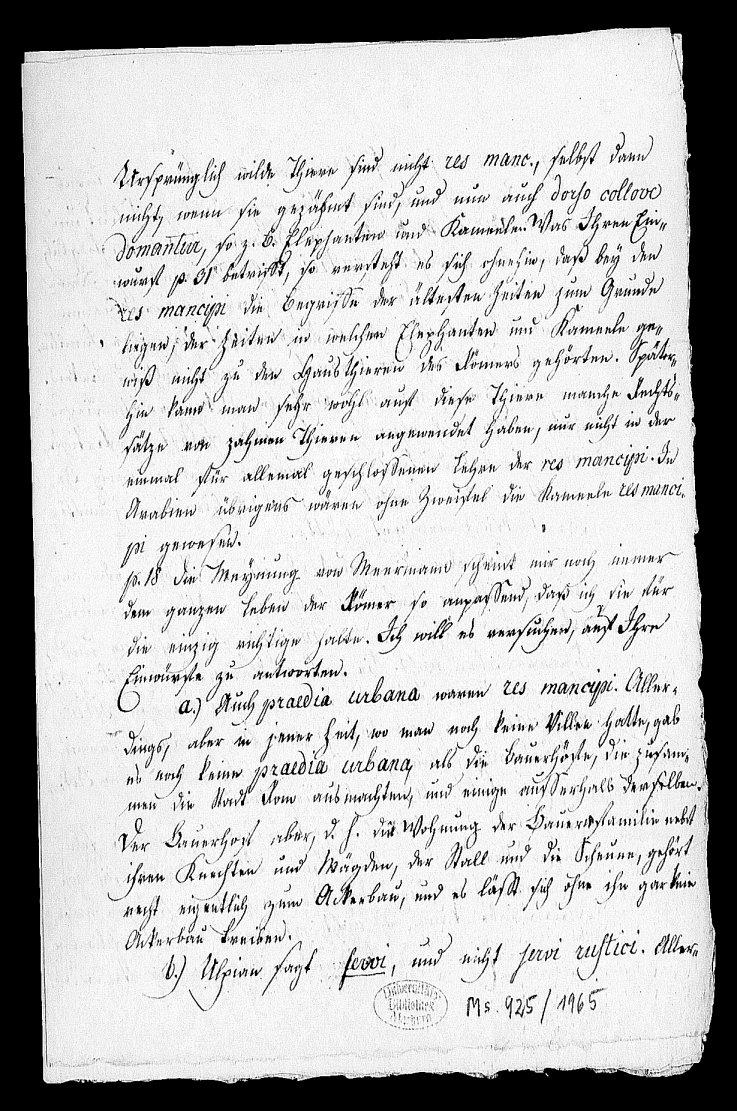 Ursprünglich wilde Thiere sind nicht res manc., selbst dann
nicht, wenn sie gezähmt sind, und nun auch dorso collove
domantur, so z. B. Elephanten und Kameele. Was Ihren Ein-
wurf p. 31 betrifft, so versteht es sich ohnehin, daß bey den
res mancipi die Begriffe der ältesten Zeiten zum Grunde
liegen, der Zeiten in welchen Elephanten und Kameele ge-
wiß nicht zu den Hausthieren des Römers gehörten. Später-
hin kann man sehr wohl auf diese Thiere manche Rechts-
sätze von zahmen Thieren angewendet haben, nur nicht in der
einmal für allemal geschlossenen Lehre der res mancipi. In
Arabien übrigens wären ohne Zweifel die Kameele res manci-
pi gewesen.
p. 18 die Meynung von Meermann scheint mir noch immer
dem ganzen Leben der Römer so anpassend, daß ich sie für
die einzig richtige halte. Ich will es versuchen, auf Ihre
Einwürfe zu antworten.
a.) Auch praedia urbana waren res mancipi. Aller-
dings, aber in jener Zeit, wo man noch keine Villen hatte, gab
es noch keine praedia urbana, als die Bauerhöfe, die zusam-
men die Stadt Rom ausmachten, und einige ausserhalb derselben.
Der Bauerhof aber, d. h. die Wohnung der Bauersfamilie nebst
ihren Knechten und Mägden, der Stall und die Scheune, gehört
recht eigentlich zum Ackerbau, und es läßt sich ohne ihn gar kein
Ackerbau treiben.
b.) Ulpian sagt servi, und nicht servi rustici. Aller-
Universitäts-
Bibliothek
Marburg
Ms. 925/1965